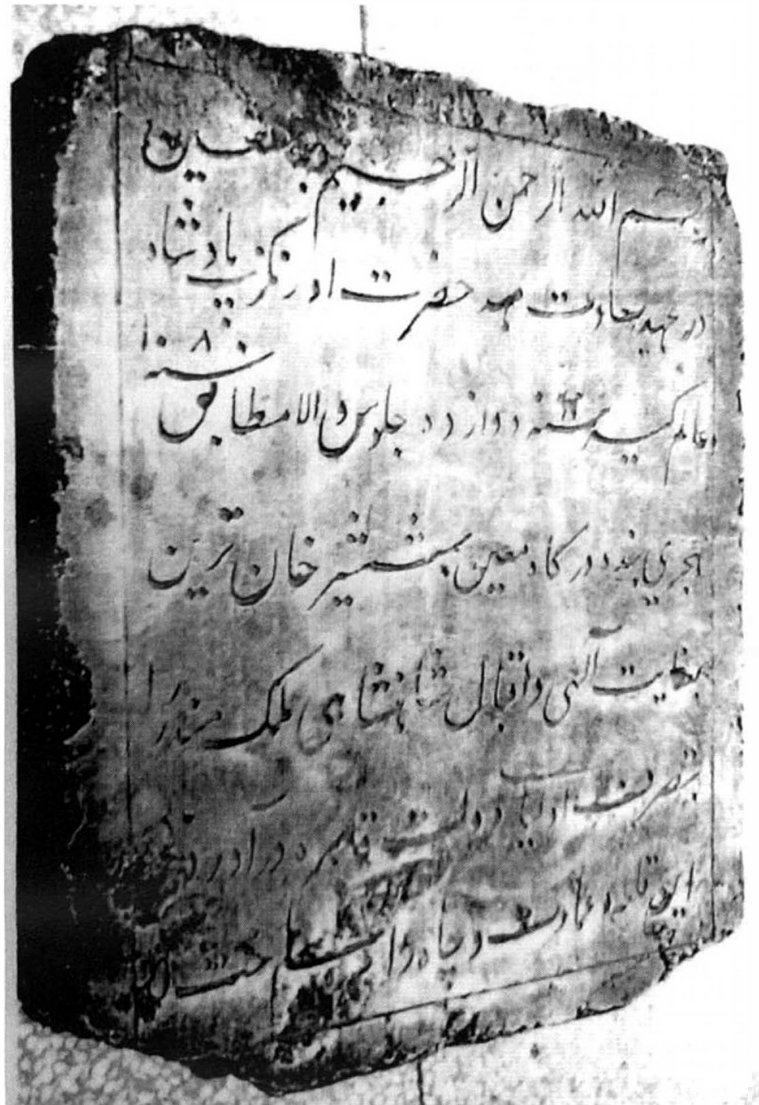 بسم الله الرحمن الرحیم و به نستعین
در عهد سعادت مهد حضرت اورنگزیب پادشاه
عالمگیر سنه ۱۲ دوازده جلوس والا مطابق سنه ۱۰۸۰
هجری بنده درگاه معین شمشیر خان ترین
بعنایت الهی و اقبال شاهنشاهی ملک مندر را
بتصرف اولیاء دولت قاهره درآورده
این قلعه و عمارت و چاه را ساخت